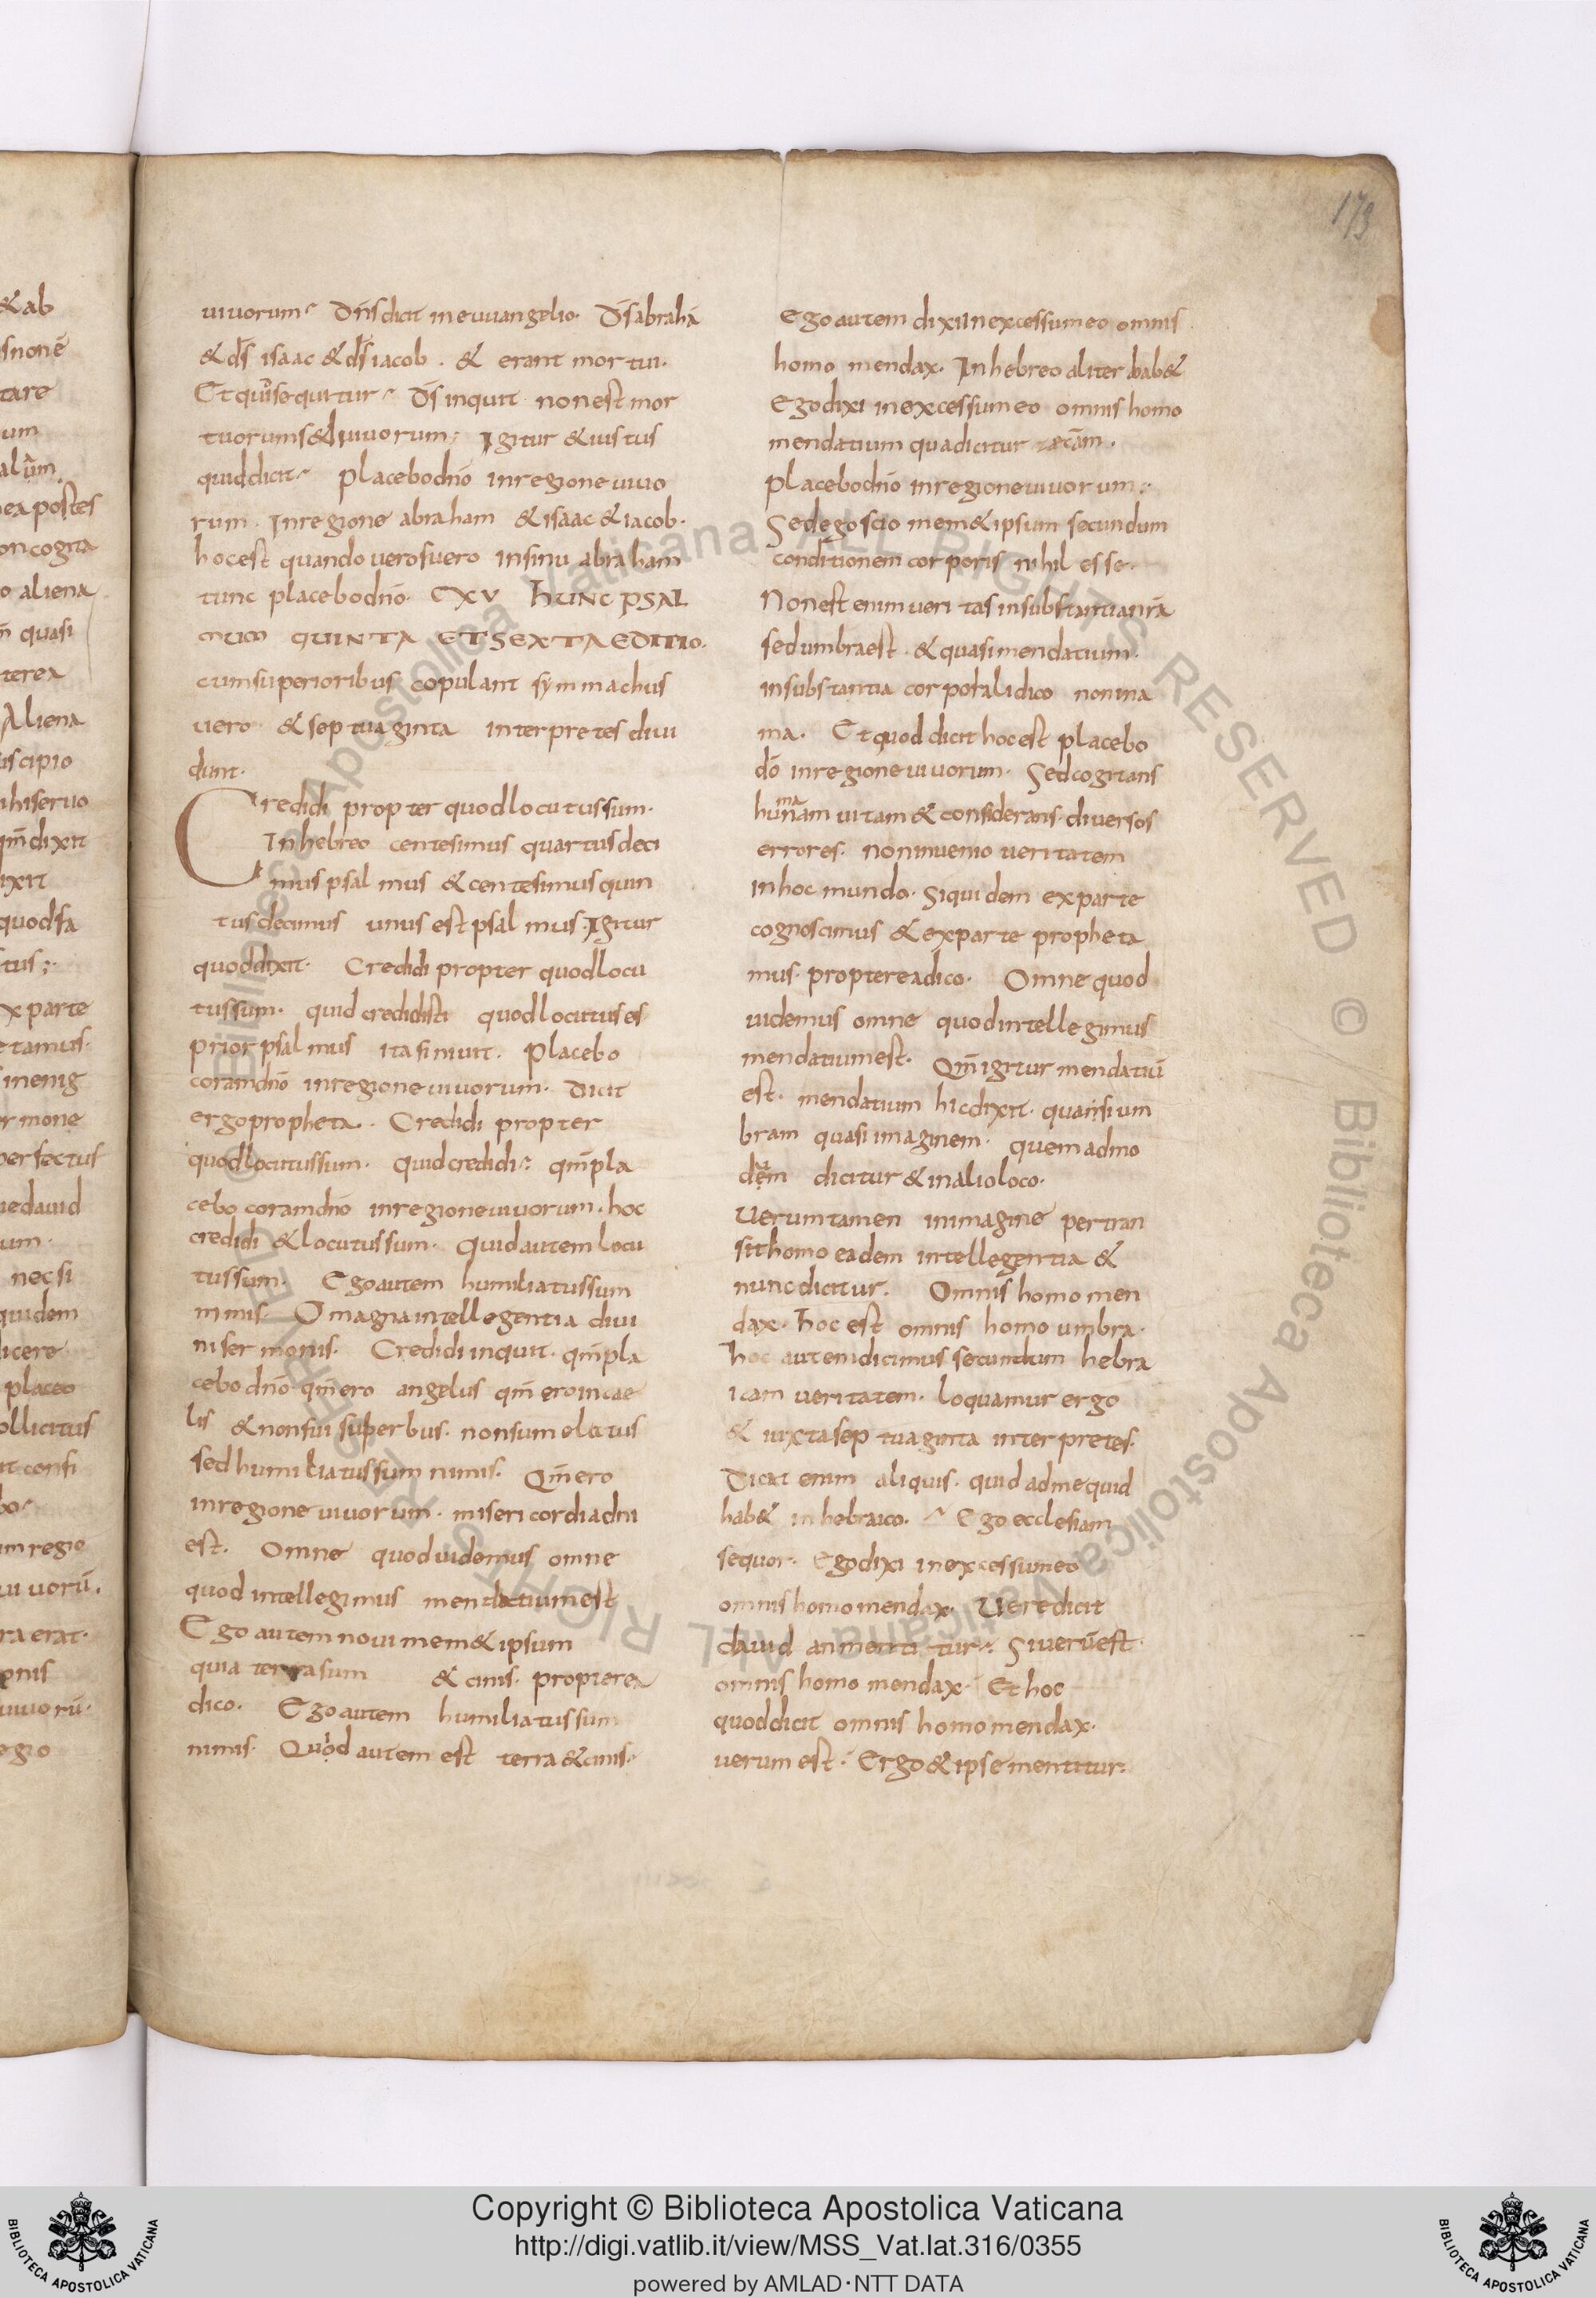 173
uiuorum? Dñs dicit in euuangelio. Ds̄ abrahā
& ds̄ isaac & ds̄ iacob. & erant mortui.
Et quid sequitur? Ds̄ inquit non est mor
tuorum sed uiuorum; Igitur & iustus
quid dicit? placebo dño in regione uiuo
rum. In regione abraham & isaac & iacob.
hoc est quando uero fuero in sinu abraham
tunc placebo dño. CXV HUNC PSAL
MUM QUINTA ET SEXTA EDITIO.
cum superioribus copulant symmachus
uero & septuaginta interpretes diui
dunt.
Credidi propter quod locutus sum.
In hebreo centesimus quartus deci
mus psalmus & centesimus quin
tus decimus unus est psalmus. Igitur
quod dixit. Credidi propter quod locu
tus sum. quid credidisti quod locutus es
prior psalmus ita finiuit. placebo
coram dño in regione uiuorum. Dicit
ergo propheta. Credidi propter
quod locutus sum. quid credidi? qm̄ pla
cebo coram dño in regione uiuorum. hoc
credidi & locutus sum. Quid autem locu
tus sum. Ego autem humiliatus sum
nimis. O magna intellegentia diui
ni sermonis. Credidi inquit. qm̄ pla
cebo dño qm̄ ero angelus qm̄ ero in cae
lis & non fui superbus. non sum elatus
sed humiliatus sum nimis. Qm̄ ero
in regione uiuorum. misericordia dni
est. Omne quod uidemus omne
quod intellegimus mendatium est
Ego autem noui mem& ipsum
quia terra sum & cinis. propterea
dico. Ego autem humiliatus sum
nimis. Quod autem est terra & cinis.
ego autem dixi in excessu meo omnis
homo mendax. In hebreo aliter hab&
Ego dixi in excessu meo omnis homo
mendatium qua dicitur
placebo dño in regione uiuorum;
Sed ego scio mem& ipsum secundum
conditionem corporis nihil esse.
Non est enim ueritas in substantia nr̄a
sed umbra est. & quasi mendatium.
in substantia corporali dico non in a
ma. Et quod dicit hoc est placebo
dō in regione uiuorum. Sed cogitans
humanam uitam & considerans diuersos
errores. non inuenio ueritatem
in hoc mundo. siquidem ex parte
cognoscimus & ex parte propheta
mus. propterea dico. Omne quod
uidemus omne quod intellegimus
mendatium est. Qm̄ igitur mendatiū
est. mendatium hic dixit. quasi um
bram quasi imaginem. quemadmo
dum dicitur & in alio loco.
Uerumtamen in imagine pertran
sit homo eadem intellegentia &
nunc dicitur. Omnis homo men
dax. hoc est omnis homo umbra.
hoc autem dicimus secundum hebra
icam ueritatem. loquamur ergo
& iuxta septuaginta interpretes.
Dicit enim aliquis. quid ad me quid
hab& in hebraico. Ego ecclesiam
sequor. Ego dixi in excessu meo
omnis homo mendax. Uere dicit
dauid an mentitur? Si uerū est.
omnis homo mendax. Et hoc
quod dicit omnis homo mendax.
uerum est. Ergo & ipse mentitur.
Copyright © Biblioteca Apostolica Vaticana
http://digi.vatlib.it/view/MSS_Vat.lat.316/0355
powered by AMLAD·NTT DATA